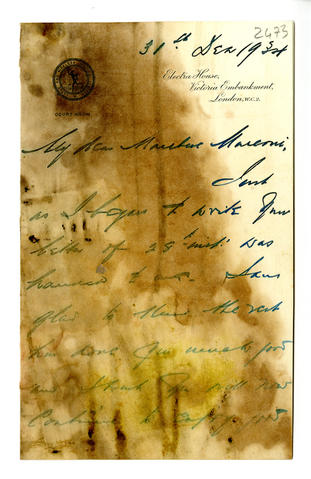 2473
31st Dec 1934
Electra House,
Victoria Embankment,
London, W.C.2.
COURT ROOM
My dear Marchese Marconi,
Just
as I began to write your
letter of 28th inst: was
handed to me. I am
glad to think the rest
has done you much good
and I trust you will now
continue to enjoy good